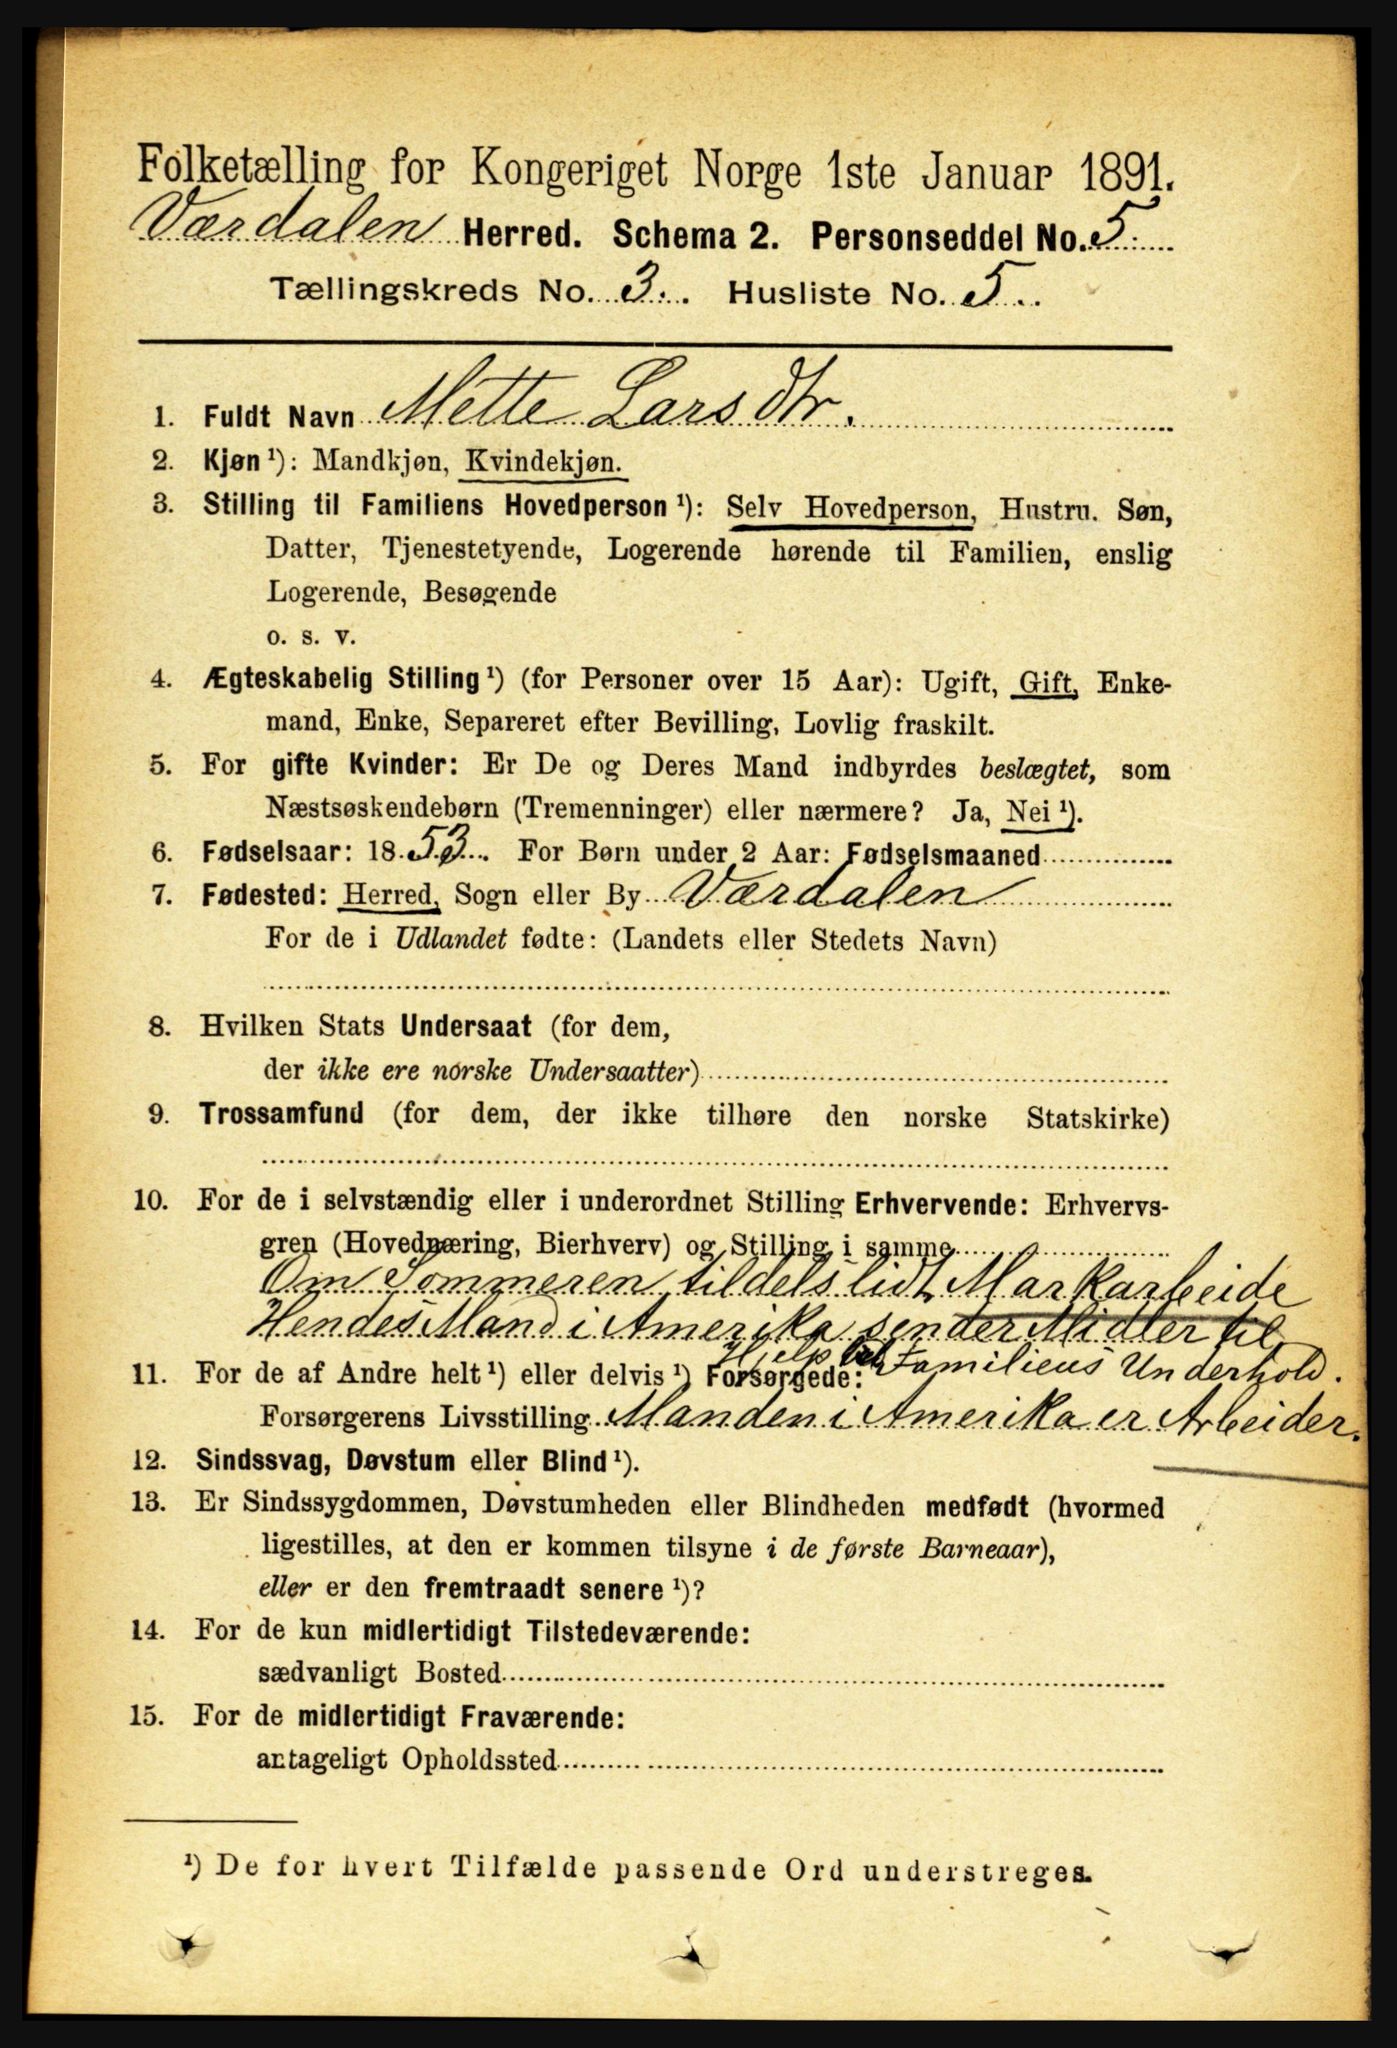 Folketælling for Kongeriget Norge 1ste Januar 1891.
Værdalen Herred. Schema 2. Personseddel No. 5.
Tællingskreds No. 3. Husliste No. 5.
1. Fuldt Navn Mette Larsdtr.
2. Kjøn ¹): Mandkjøn, Kvindekjøn.
3. Stilling til Familiens Hovedperson ¹): Selv Hovedperson, Hustru. Søn,
Datter, Tjenestetyende, Logerende hørende til Familien, enslig
Logerende, Besøgende
o. s. v.
4. Ægteskabelig Stilling ¹) (for Personer over 15 Aar): Ugift, Gift, Enke-
mand, Enke, Separeret efter Bevilling, Lovlig fraskilt.
5. For gifte Kvinder: Er De og Deres Mand indbyrdes beslægtet, som
Næstsøskendebørn (Tremenninger) eller nærmere? Ja, Nei ¹).
6. Fødselsaar: 1853. For Børn under 2 Aar: Fødselsmaaned
7. Fødested: Herred, Sogn eller By Værdalen
For de i Udlandet fødte: (Landets eller Stedets Navn)
8. Hvilken Stats Undersaat (for dem,
der ikke ere norske Undersaatter)
9. Trossamfund (for dem, der ikke tilhøre den norske Statskirke)
10. For de i selvstændig eller i underordnet Stilling Erhvervende: Erhvervs-
gren (Hovednæring, Bierhverv) og Stilling i samme
Om Sommeren tildels lidt Markarbeide
Hendes Mand i Amerika sender Midler til
Hjelp Familiens Underhold.
11. For de af Andre helt ¹) eller delvis ¹) Forsørgede:
Forsørgerens Livsstilling Manden i Amerika er Arbeider.
12. Sindssvag, Døvstum eller Blind ¹).
13. Er Sindssygdommen, Døvstumheden eller Blindheden medfødt (hvormed
ligestilles, at den er kommen tilsyne i de første Barneaar),
eller er den fremtraadt senere ¹)?
14. For de kun midlertidigt Tilstedeværende:
sædvanligt Bosted
15. For de midlertidigt Fraværende:
antageligt Opholdssted
¹) De for hvert Tilfælde passende Ord understreges.